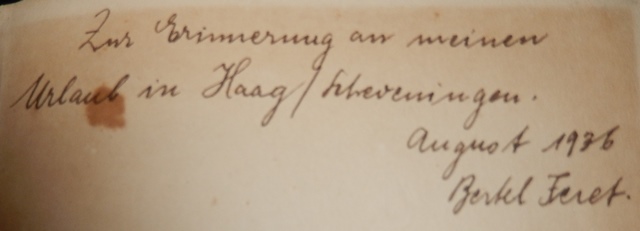 Zur Erinnerung an meinen
Urlaub in Haag / Scheveningen.
August 1936
Bertel Feret.